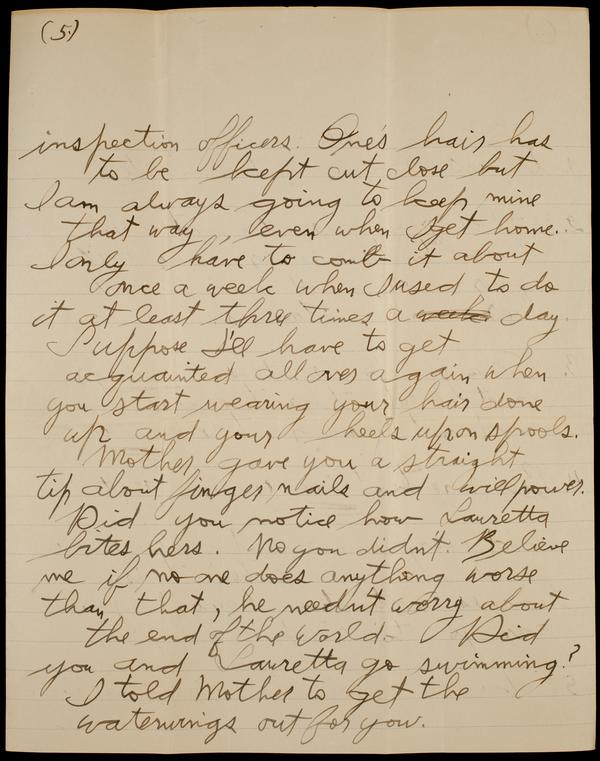 (5.)
inspection officers. One's hair has
to be kept cut close but
I am always going to keep mine
that way, even when I get home.
I only have to comb it about
once a week when I used to do
it at least three times a week day.
Suppose I'll have to get
acquainted all over again when
you start wearing your hair done
up and your heels upon spools.
Mother gave you a straight
tip about finger nails and willpower.
Did you notice how Lauretta
bites hers. No you didn't. Believe
me if no one does anything worse
than that, he needn't worry about
the end of the world. Did
you and Lauretta go swimming?
I told Mother to get the
waterwings out for you.